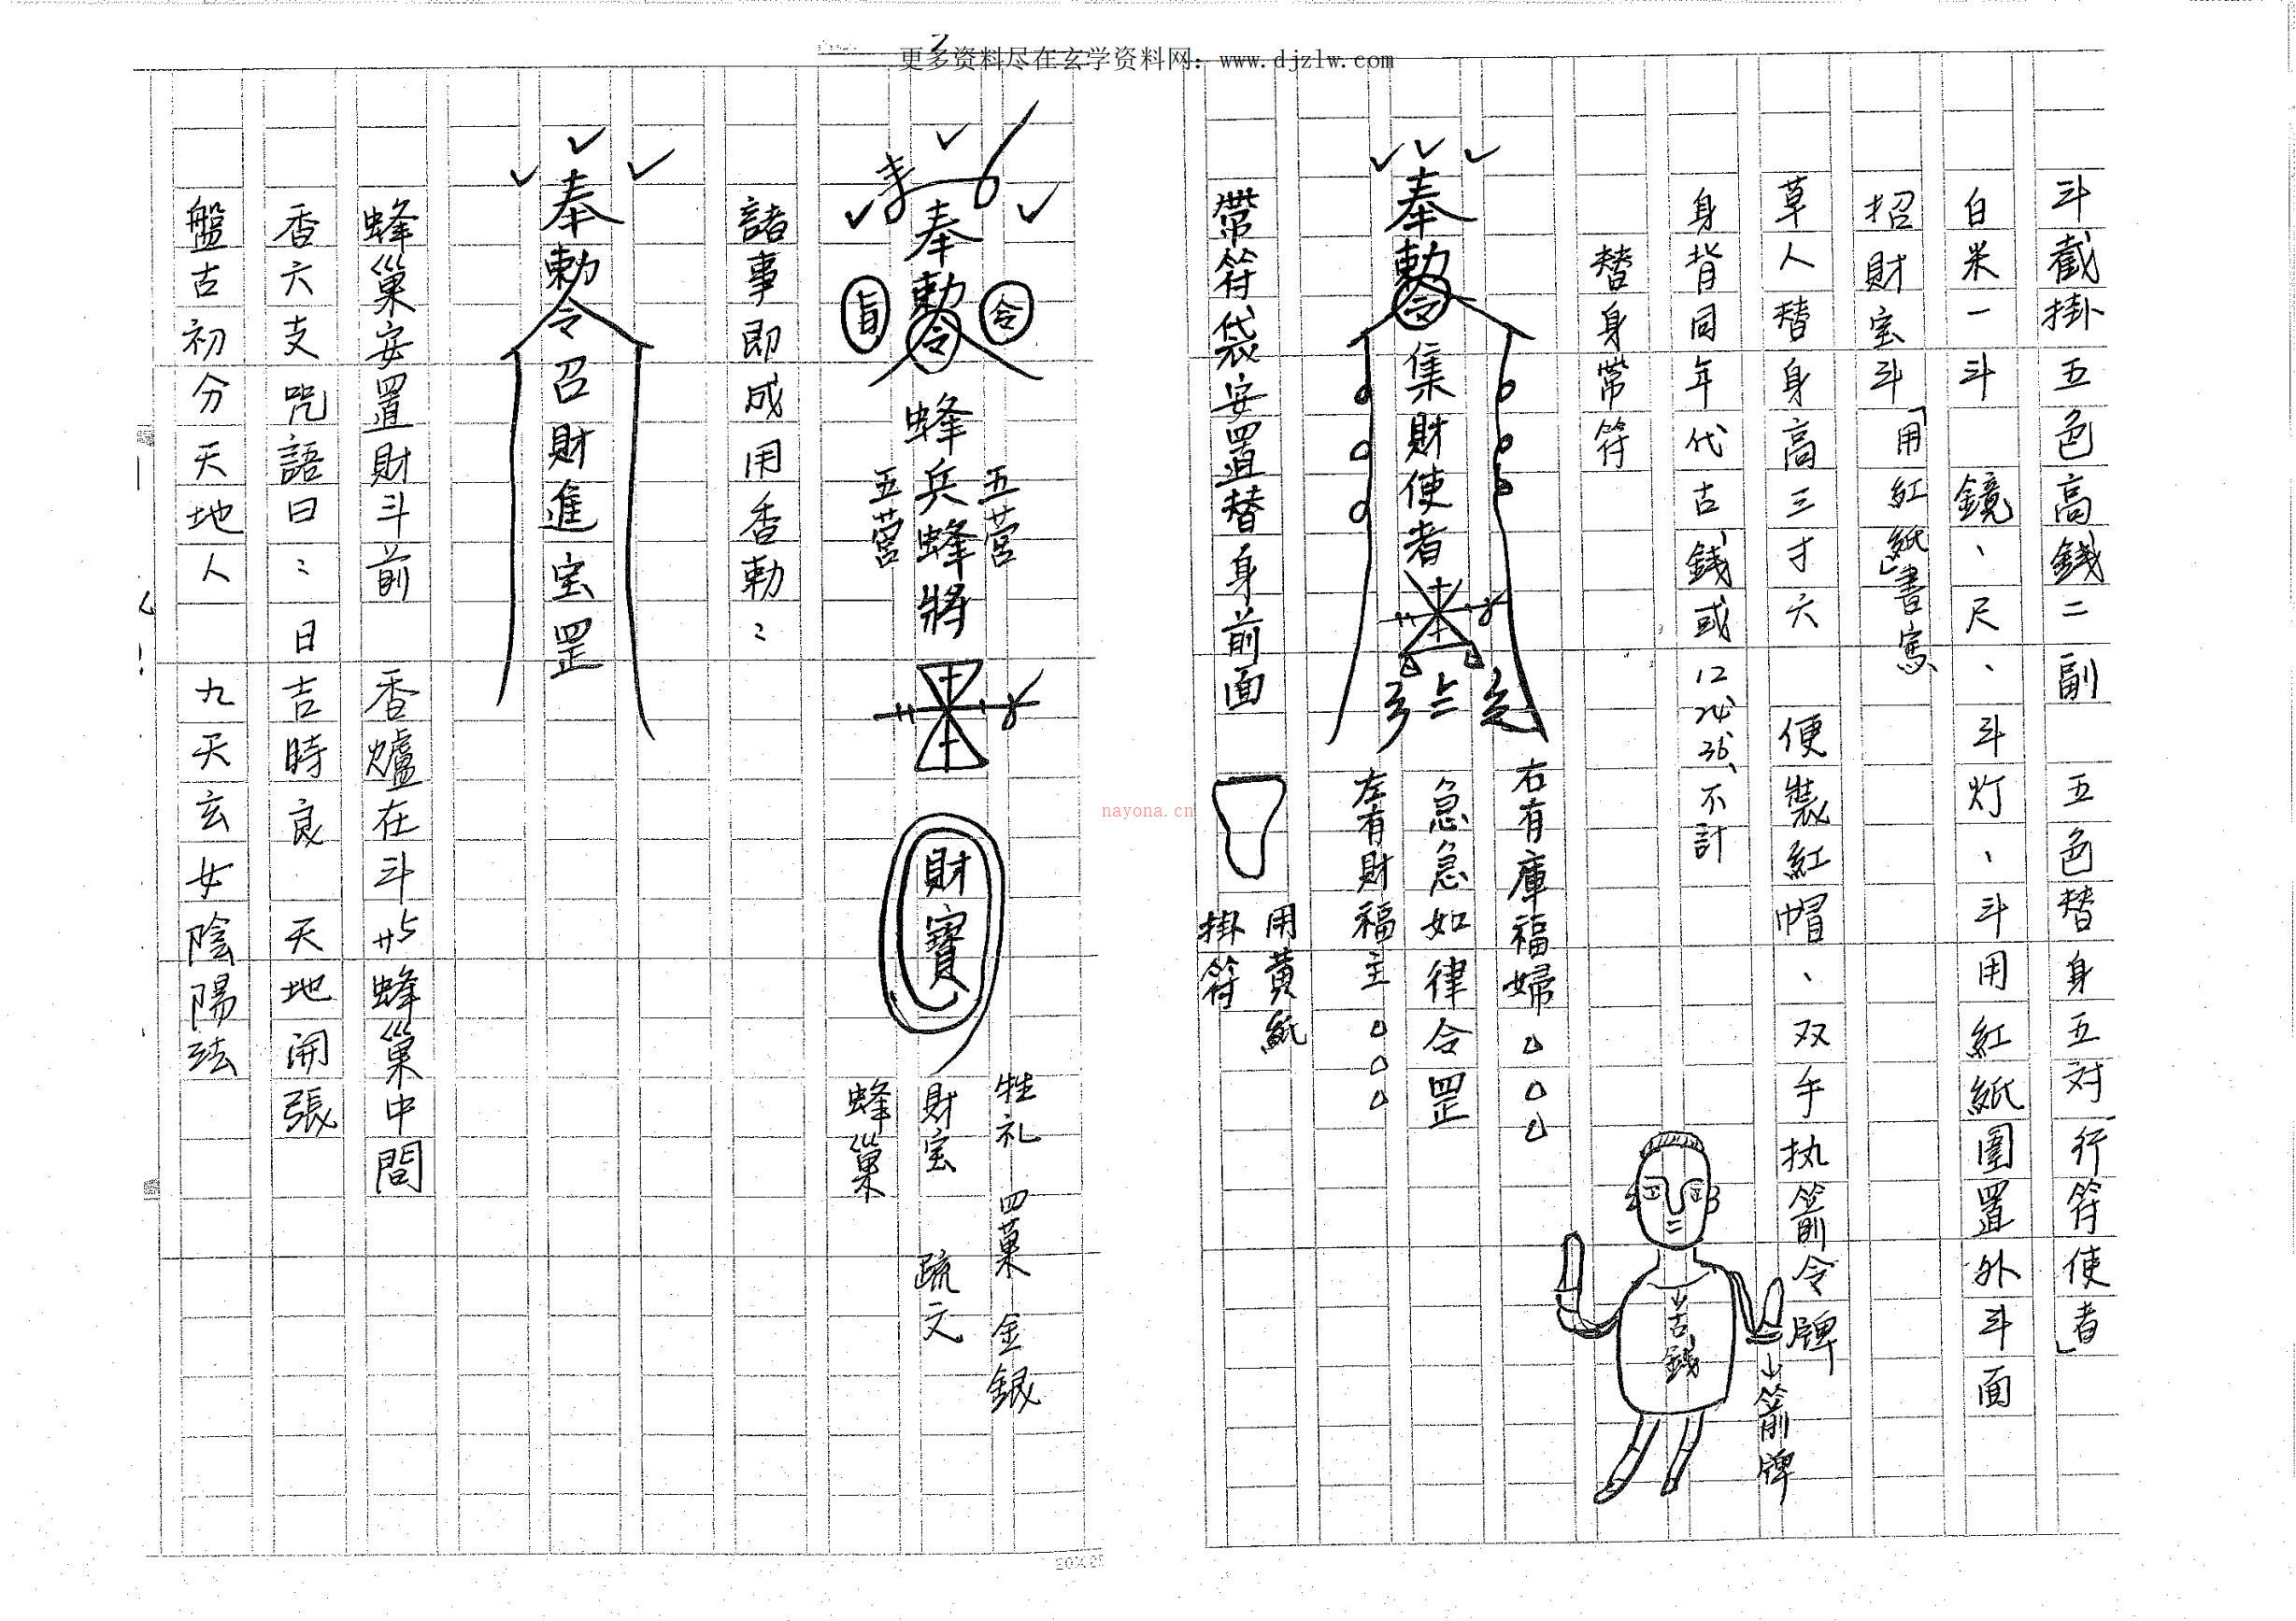 更多资料尽在玄学资料网：www.djzlw.com
斗截掛五色高錢二副 五色替身五対 行符使者」
白米一斗 鏡、尺、斗灯、斗用紅紙圍置外斗面
招財宝斗「用紅紙」書寫
草人替身高三寸六 便裝紅帽、双手执箭令牌
身背同年代古錢或12、24、36、不計
替身帶符
古錢
箭牌
右有庫福婦
奉勅令集財使者
急急如律令罡
左有財福主
帶符袋安置替身前面
用黃紙
掛符
牲礼 四菓 金銀
五營
令
奉勅令蜂兵蜂將
財寶
財宝 疏文
五營
旨
蜂巢
諸事即成用香勅:
奉勅令召財進宝罡
蜂巢安置財斗前 香爐在斗 蜂巢中間
香六支咒語曰: 日吉時良 天地開張
盤古初分天地人 九天玄女陰陽法
nayona.cn